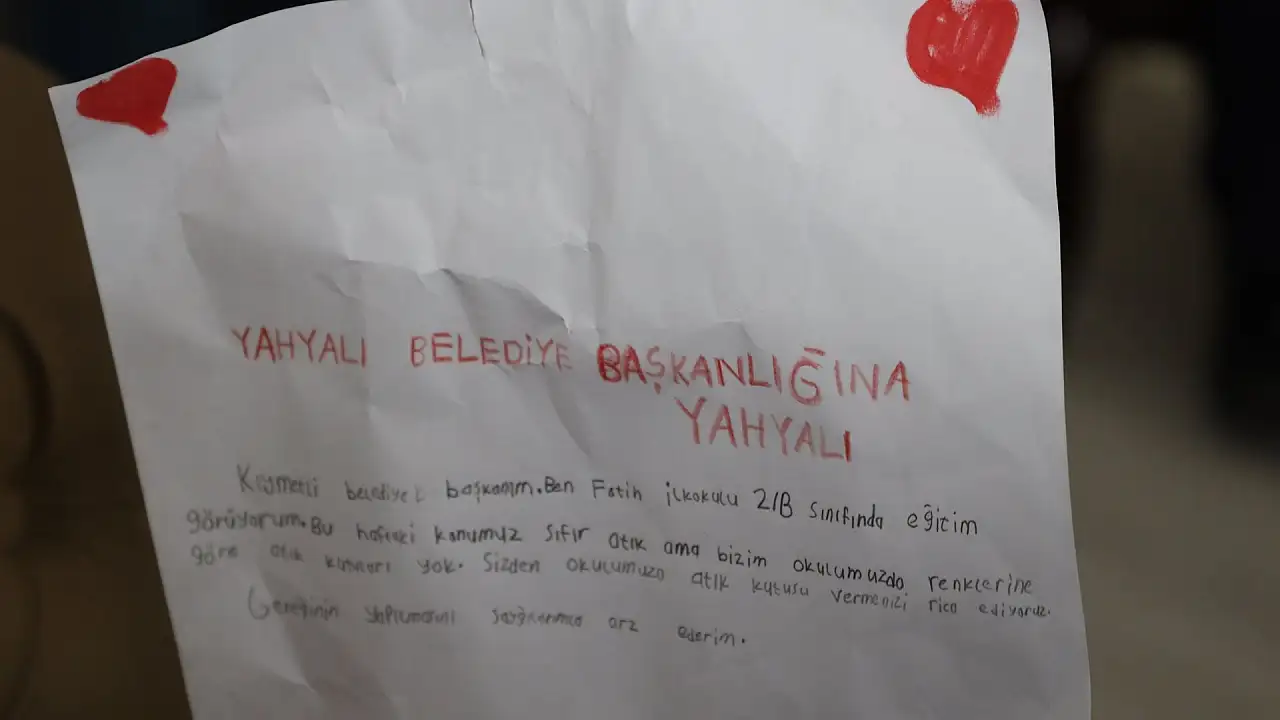 YAHYALI BELEDİYE BAŞKANLIĞINA
YAHYALI
Kıymetli belediye başkanım. Ben Fatih ilkokulu 2/B sınıfında eğitim
görüyorum. Bu haftaki konumuz sıfır atık ama bizim okulumuzda renklerine
göre atık kutuları yok. Sizden okulumuza atık kutusu vermenizi rica ediyoruz.
Gereğinin yapılmasını saygılarımla arz ederim.